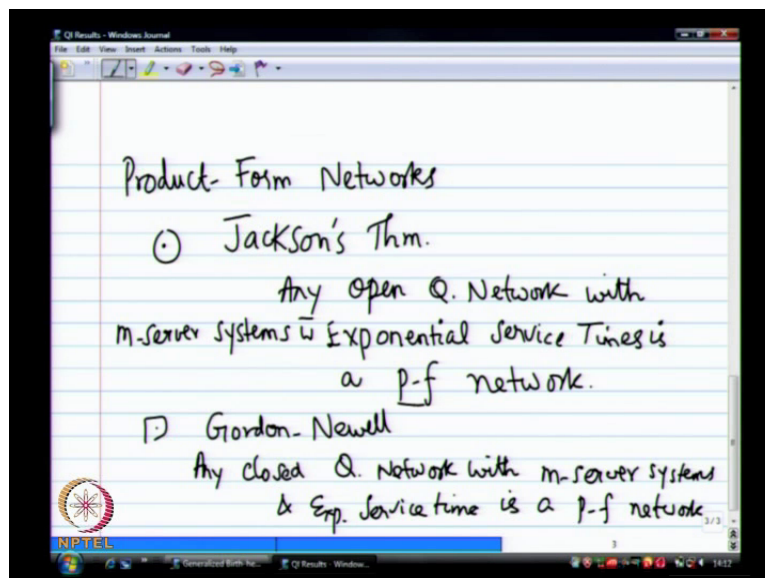 QI Results - Windows Journal
File Edit View Insert Actions Tools Help
Product-Form Networks
Jackson's Thm.
Any open Q. Network with
m-server systems w̄ Exponential Service Times is
a p-f network.
Gordon-Newell
Any closed Q. Network with m-server systems
& Exp. Service time is a p-f network
3/3
3
NPTEL
Generalized Birth-he... QI Results - Window... 14:12